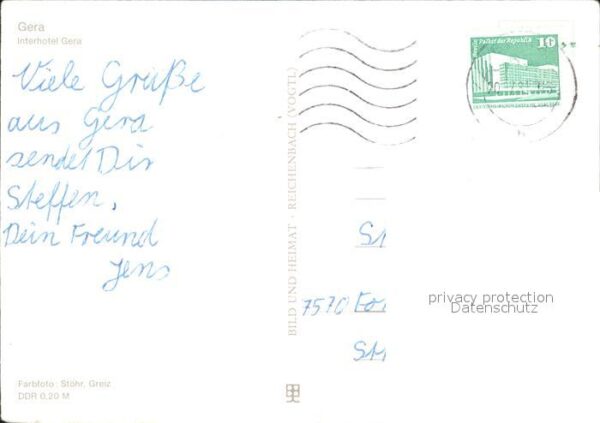 Gera
Interhotel Gera
Viele Grüße
aus Gera
sendet Dir
Steffen,
Dein Freund
Jens
Farbfoto: Stöhr, Greiz
DDR 0,20 M
BILD UND HEIMAT · REICHENBACH (VOGTL)
Palast der Republik
10
St
7570 Fo
St
privacy protection
Datenschutz